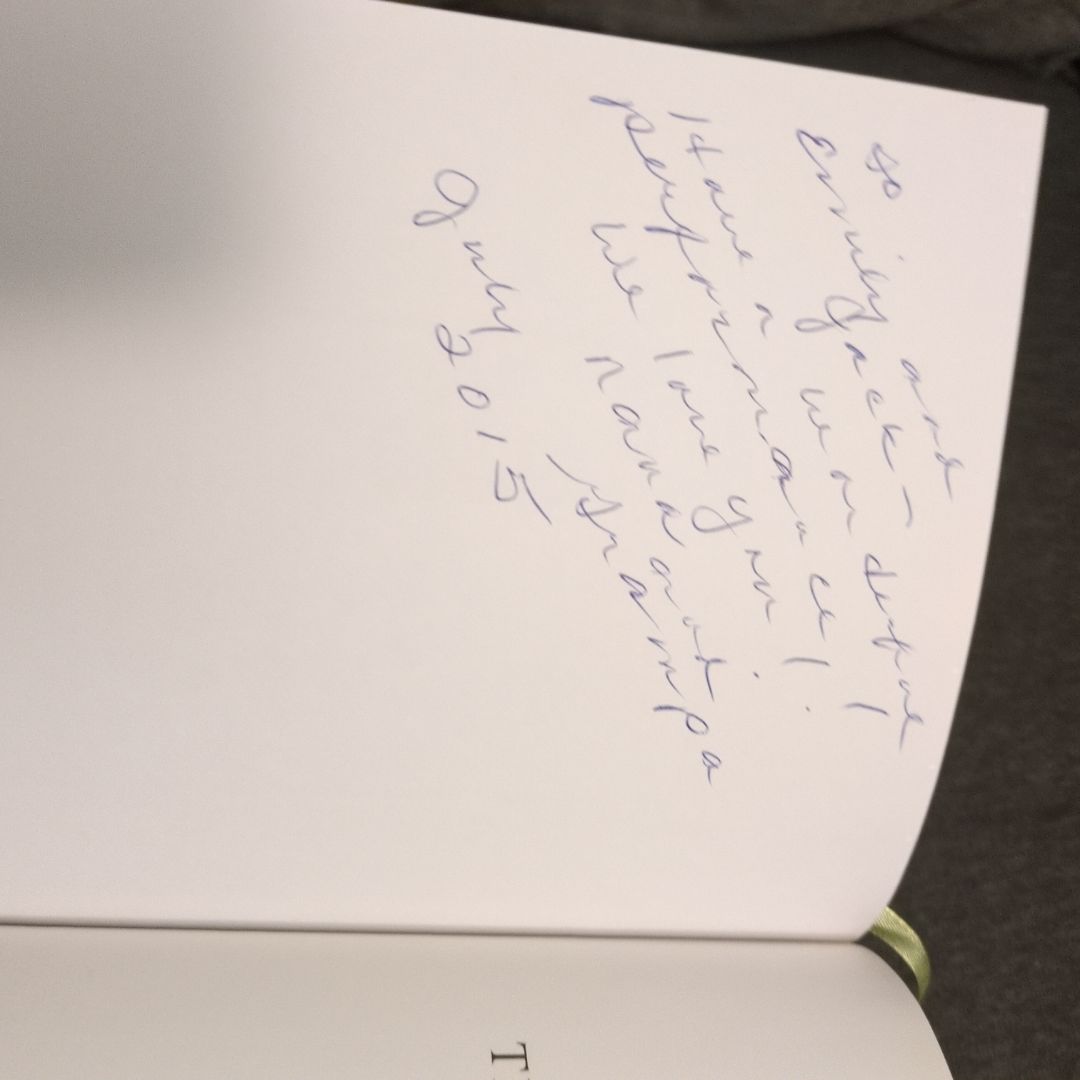 To
Emily and
Jack –
Have a wonderful
performance!!
We love you
nana and
Grampa
July
2015
T